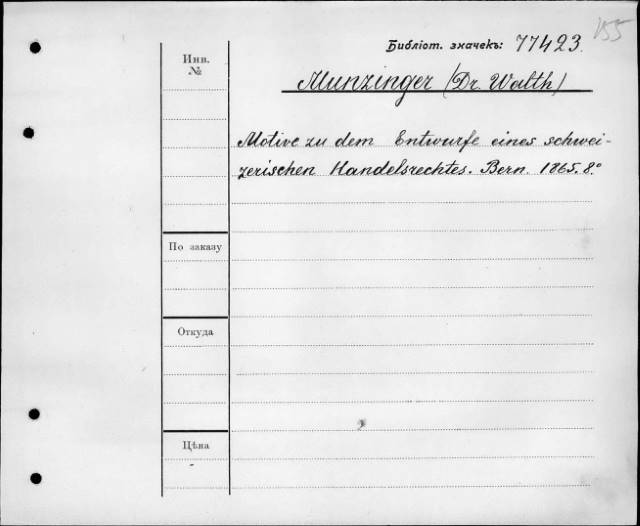 155
Библіот. значекъ: 77423.
Инв.
№
Munzinger (Dr. Walth)
Motive zu dem Entwurfe eines schwei-
zerischen Handelsrechtes. Bern. 1865. 8.°
По заказу
Откуда
Цѣна